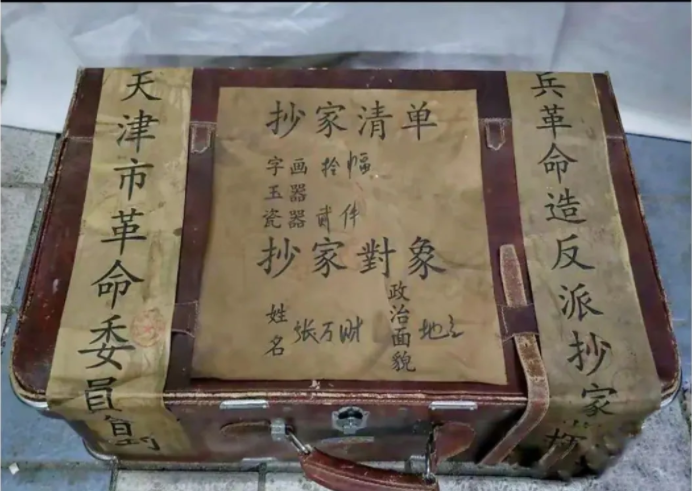 天津市革命委員
抄家清单
字画 拾幅
玉器
瓷器 貳件
抄家對象
姓名 张万财
政治面貌 地主
兵革命造反派抄家